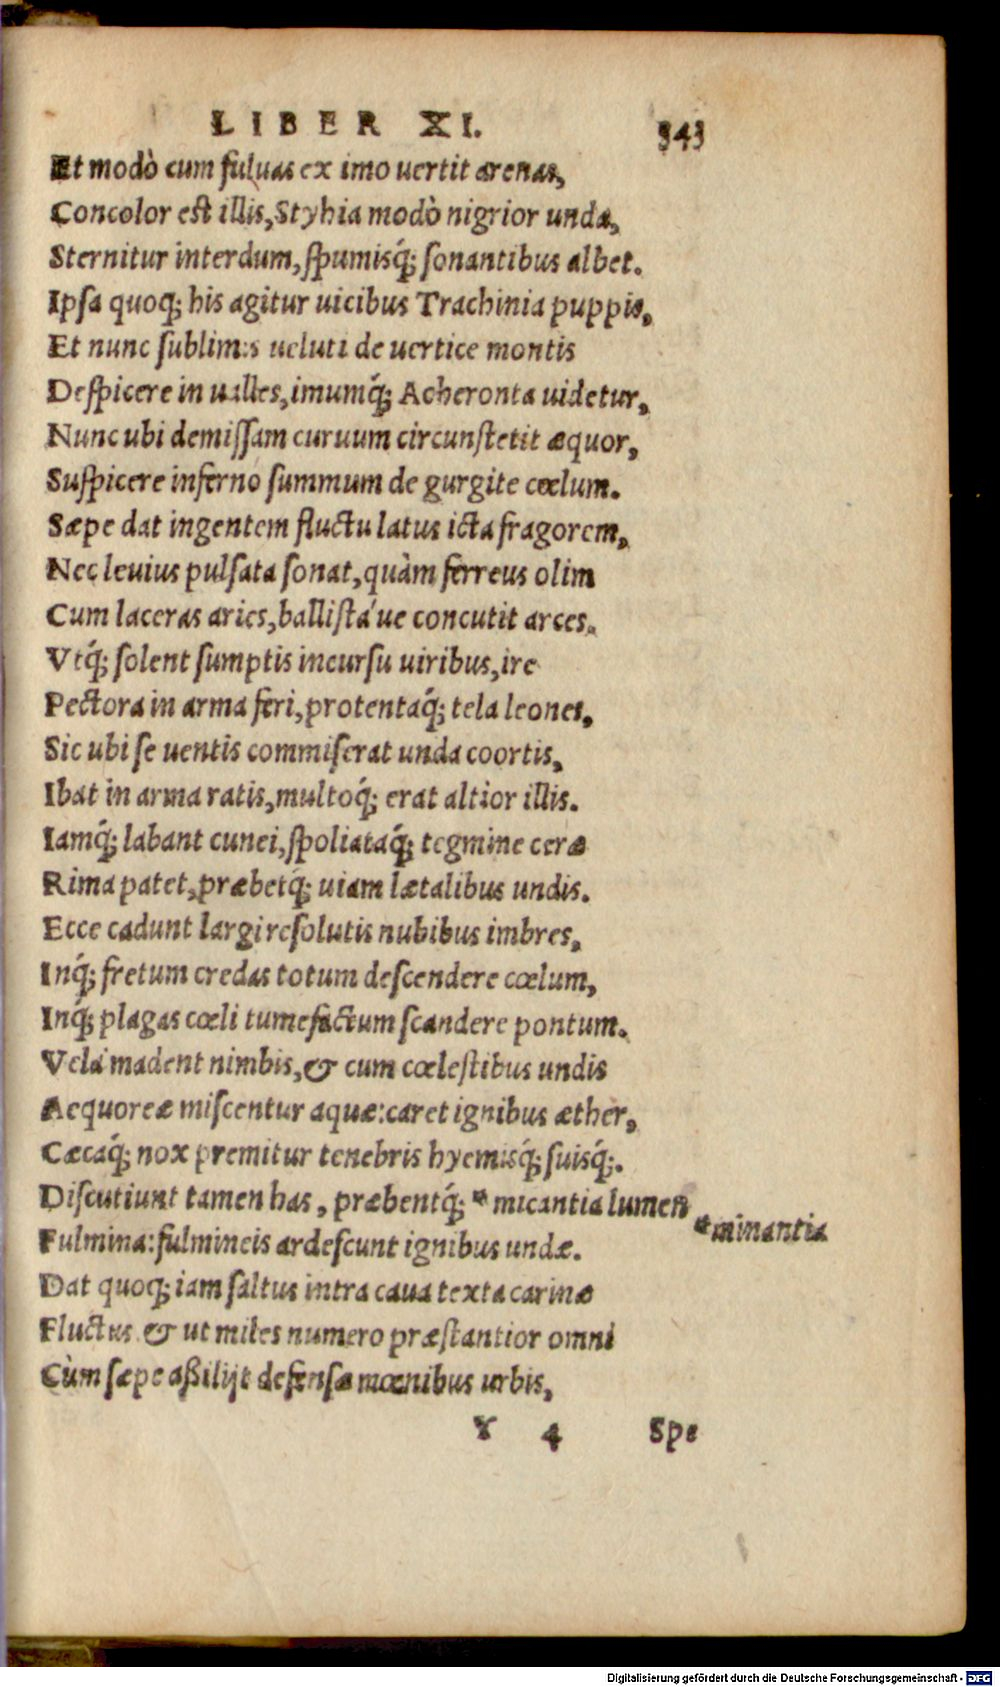 LIBER XI. 343
Et modò cum fuluas ex imo uertit arenas,
Concolor est illis, Styhia modò nigrior unda,
Sternitur interdum, ſpumisq́; ſonantibus albet.
Ipſa quoq; his agitur uicibus Trachinia puppis,
Et nunc ſublimis ueluti de uertice montis
Deſpicere in ualles, imumq́; Acheronta uidetur,
Nunc ubi demiſſam curuum circunſtetit æquor,
Suſpicere inferno ſummum de gurgite cœlum.
Sæpe dat ingentem fluctu latus icta fragorem,
Nec leuius pulſata ſonat, quàm ferreus olim
Cum laceras aries, balliſtá ue concutit arces.
Vtq́; ſolent ſumptis incurſu uiribus, ire
Pectora in arma feri, protentaq́; tela leones,
Sic ubi ſe uentis commiſerat unda coortis,
Ibat in arma ratis, multoq́; erat altior illis.
Iamq́; labant cunei, ſpoliataq́; tegmine ceræ
Rima patet, præbetq́; uiam lætalibus undis.
Ecce cadunt largi reſolutis nubibus imbres,
Inq́; fretum credas totum deſcendere cœlum,
Inq́; plagas cœli tumefactum ſcandere pontum.
Vela madent nimbis, & cum cœleſtibus undis
Aequoreæ miſcentur aquæ: caret ignibus æther,
Cæcaq́; nox premitur tenebris hyemisq́; ſuisq́;.
Diſcutiunt tamen has, præbentq́; * micantia lumen
* minantia
Fulmina: fulmineis ardeſcunt ignibus undæ.
Dat quoq; iam ſaltus intra caua texta carinæ
Fluctus. & ut miles numero præſtantior omni
Cùm ſæpe aßilijt defenſæ mœnibus urbis,
Y 4 Spe
Digitalisierung gefördert durch die Deutsche Forschungsgemeinschaft - DFG